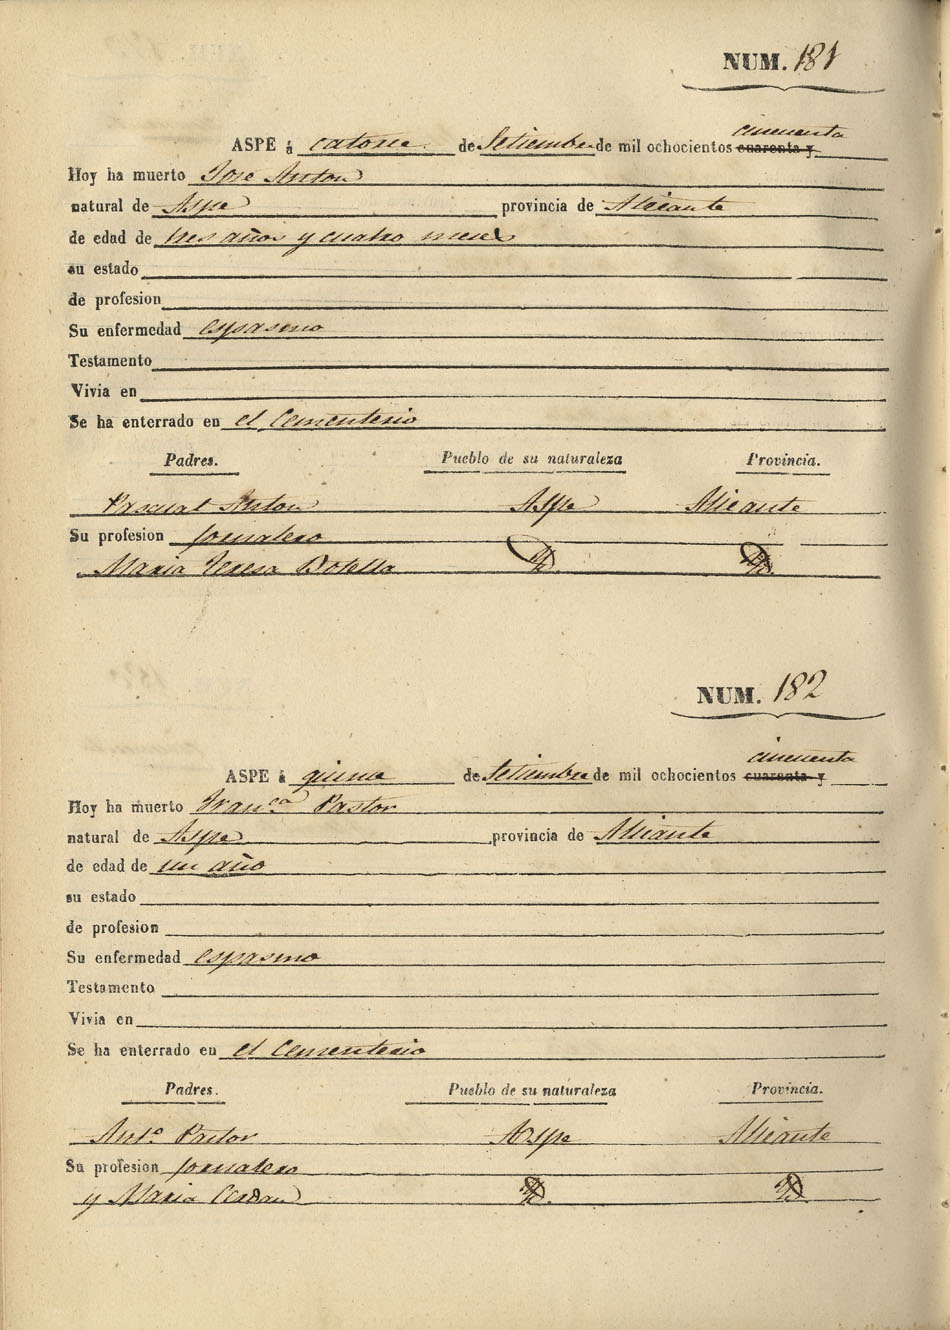 NUM. 181
cincuenta
ASPE á catorce de Setiembre de mil ochocientos cuarenta y
Hoy ha muerto Jose Anton
natural de Aspe provincia de Alicante
de edad de tres años y cuatro meses
su estado
de profesion
Su enfermedad espasmo
Testamento
Vivia en
Se ha enterrado en el Cementerio
Padres. Pueblo de su naturaleza Provincia.
Pascual Anton Aspe Alicante
Su profesion Jornalero
Maria Teresa Botella Yd. Yd.
NUM. 182
cincuenta
ASPE á quince de Setiembre de mil ochocientos cuarenta y
Hoy ha muerto Fran.ca Pastor
natural de Aspe provincia de Alicante
de edad de un año
su estado
de profesion
Su enfermedad espasmo
Testamento
Vivia en
Se ha enterrado en el Cementerio
Padres. Pueblo de su naturaleza Provincia.
Ant.o Pastor Aspe Alicante
Su profesion Jornalero
y Maria Cerdan Yd. Yd.